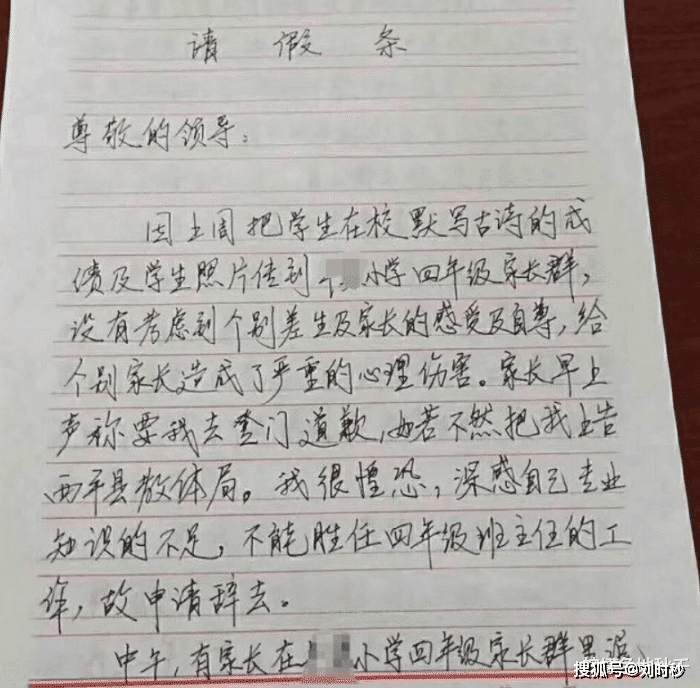 请假条
尊敬的领导：
因上周把学生在校默写古诗的成
绩及学生照片传到小学四年级家长群，
没有考虑到个别差生及家长的感受及自尊，给
个别家长造成了严重的心理伤害。家长早上
声称要我去登门道歉，如若不然把我上告
西平县教体局。我很惶恐，深感自己专业
知识的不足，不能胜任四年级班主任的工
作，故申请辞去。
中午，有家长在小学四年级家长群里
搜狐号@刘时秒